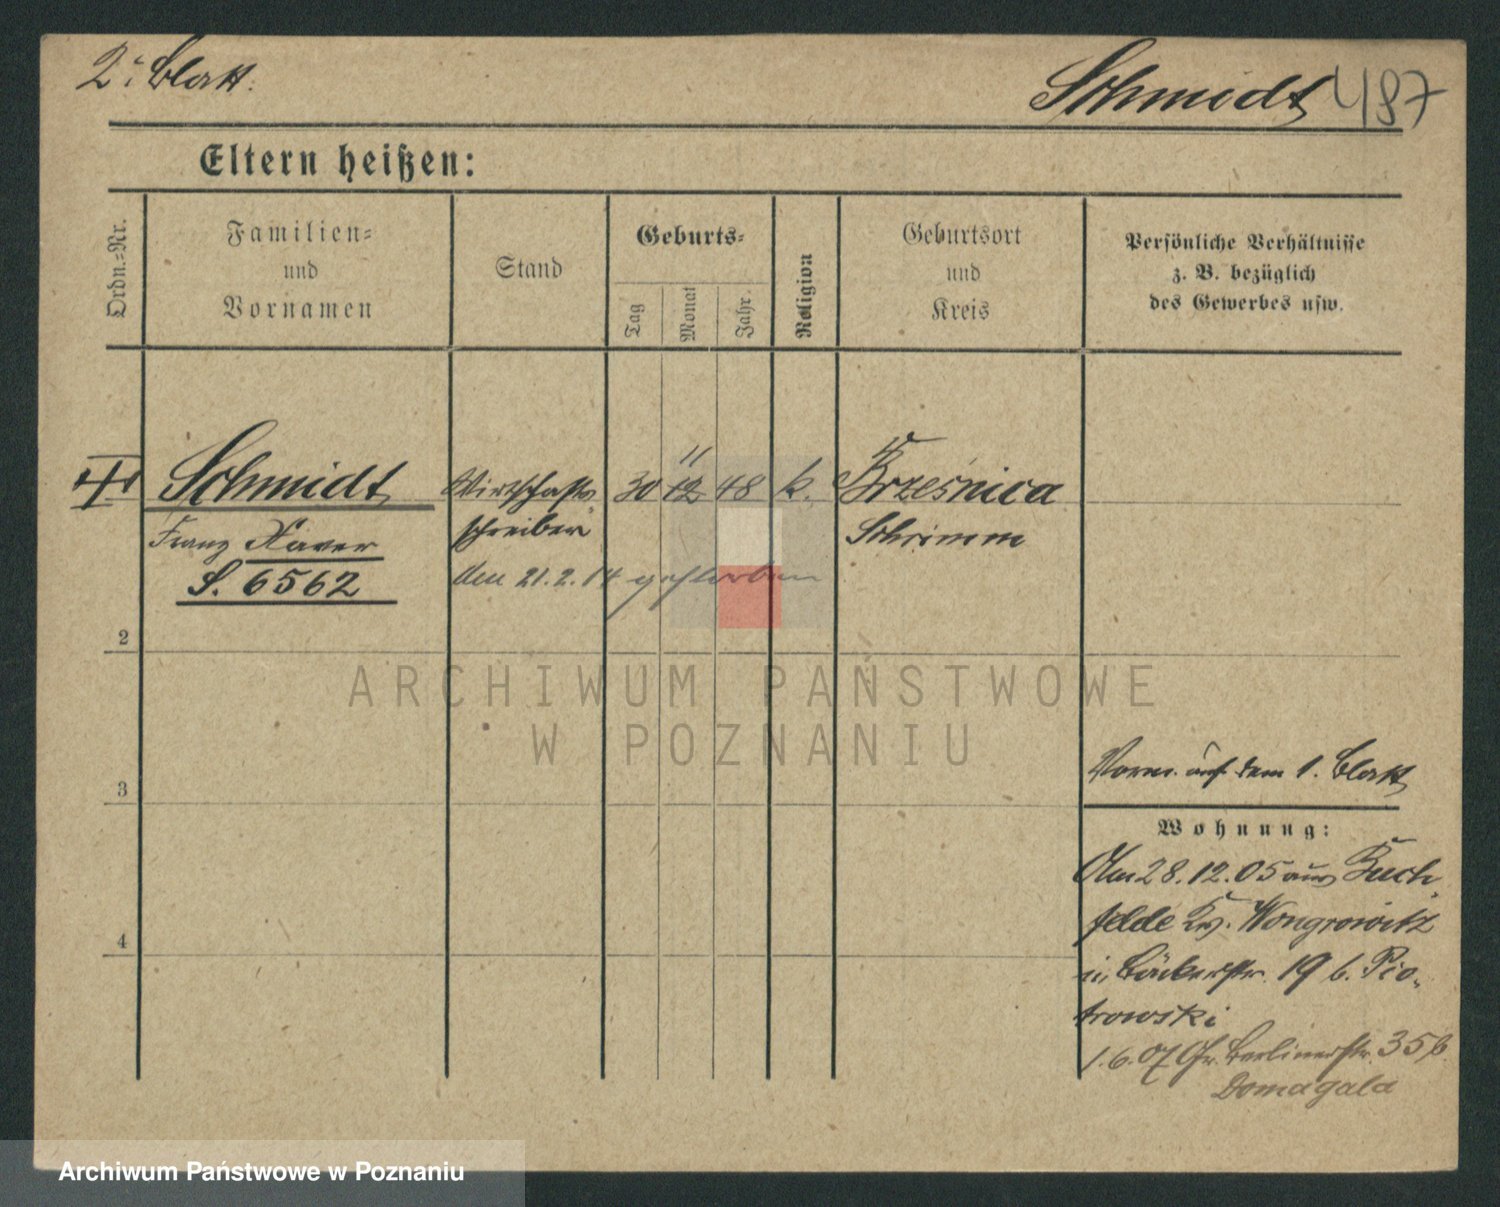 2. Blatt.
Schmidt 487
Eltern heißen:
Ordn.-Nr.
Familien-
und
Vornamen
Stand
Geburts-
Tag
Monat
Jahr.
Religion
Geburtsort
und
Kreis
Persönliche Verhältnisse
z. B. bezüglich
des Gewerbes usw.
Schmidt
Franz Xaver
S. 6562
Wirtschafts
schreiber
30 12 48 k.
11
Brześnica
Schrimm
den 21.2.14 gestorben
2
3
4
ARCHIWUM PAŃSTWOWE
W POZNANIU
Vorm. auf dem 1. Blatt
Wohnung:
Am 28.12.05 aus Buch-
felde Kr. Wongrowitz
n. Bäckerstr. 19 b. Pio-
trowski
1.6.07 Gr. Berlinerstr. 35 b.
Domagala
Archiwum Państwowe w Poznaniu